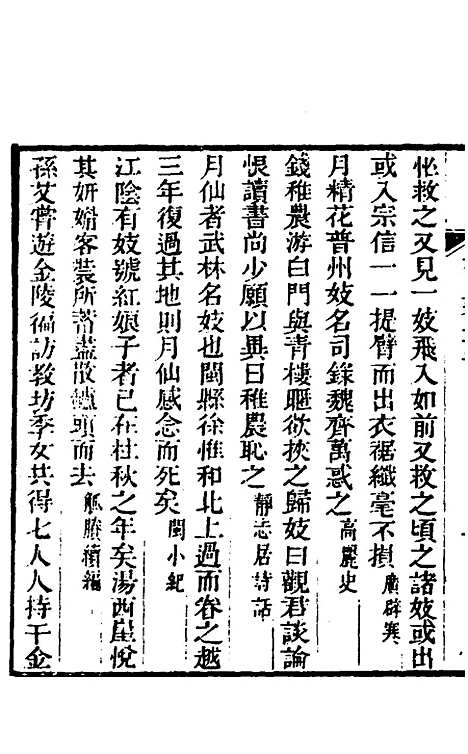 恠救之又見一妓飛入如前又救之頃之諸妓或出
或入宗信一一提臂而出衣裾纖毫不損 廣辟寒
月精花普州妓名司錄魏齊萬惑之 高麗史
錢稚農游白門與青樓暱欲挾之歸妓曰觀君談論
恨讀書尚少願以異日稚農恥之 靜志居詩話
月仙者武林名妓也閩縣徐惟和北上過而眷之越
三年復過其地則月仙感念而死矣 閩小紀
江陰有妓號紅娘子者已在杜秋之年矣湯西崖悅
其妍媚客裝所蓄盡散纏頭而去 觚賸續編
孫艾嘗遊金陵徧訪教坊季女共得七人人持千金